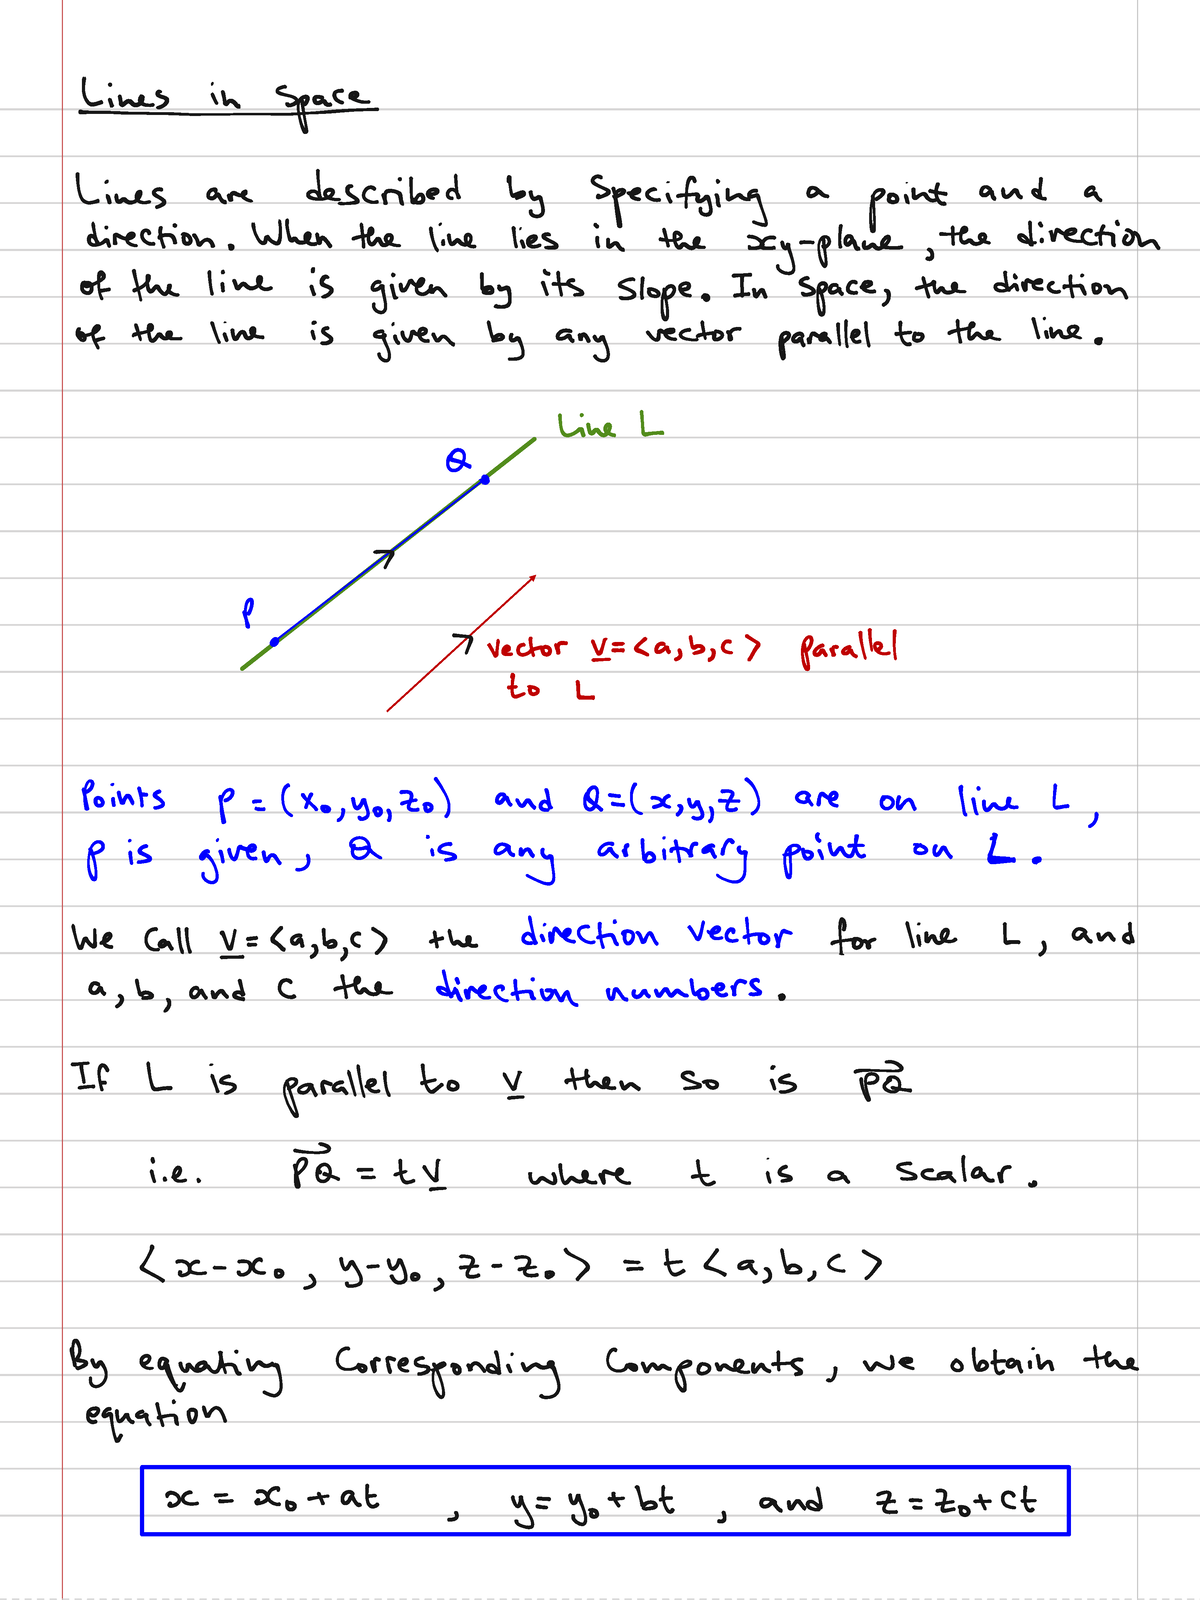 Lines in Space
Lines are described by specifying a point and a
direction. When the line lies in the xy-plane, the direction
of the line is given by its slope. In space, the direction
of the line is given by any vector parallel to the line.
Line L
Q
P
vector v=<a,b,c> parallel
to L
Points P=(x₀,y₀,z₀) and Q=(x,y,z) are on line L,
P is given, Q is any arbitrary point on L.
We call v=<a,b,c> the direction vector for line L, and
a, b, and c the direction numbers.
If L is parallel to v then so is PQ⃗
i.e. PQ⃗ = tv where t is a scalar.
<x-x₀, y-y₀, z-z₀> = t<a,b,c>
By equating corresponding components, we obtain the
equation
x = x₀+at , y=y₀+bt , and z=z₀+ct